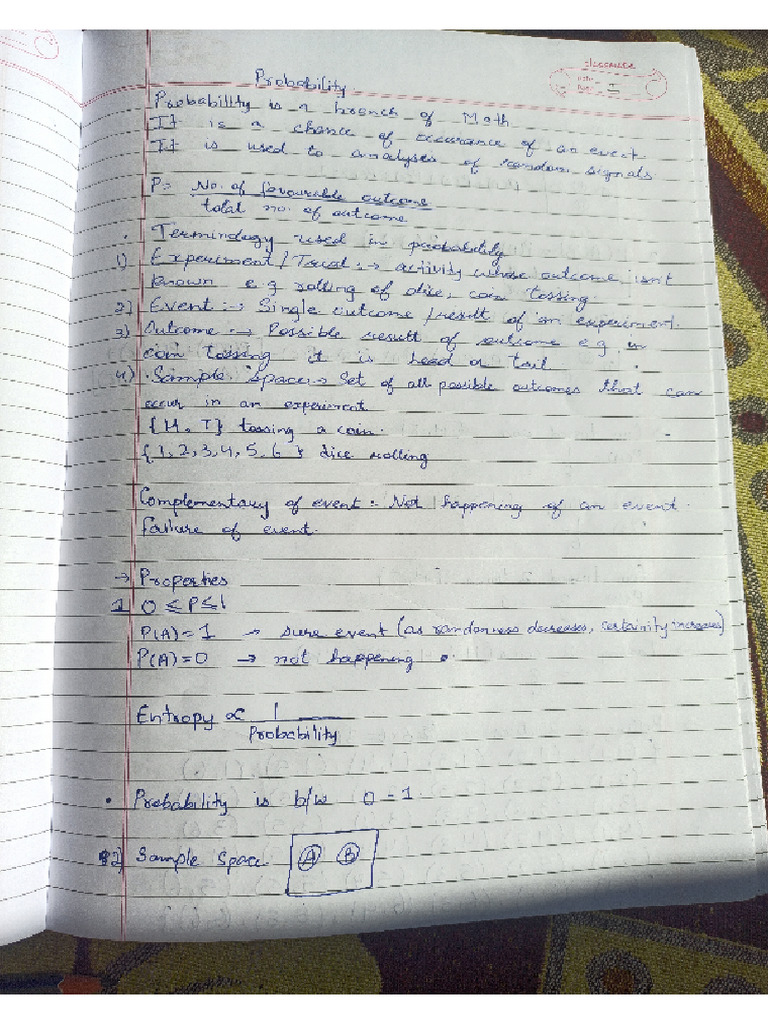 classmate
Date
Page
Probability
Probability is a branch of Math
It is a chance of occurance of an event
It is used to analyses of random signals
P = No. of favourible outcome
total no. of outcome
• Terminology used in probability
1) Experiment / Trial :→ activity whose outcome isn't
known e.g rolling of dice, coin tossing
2) Event :→ Single outcome / result of an experiment.
3) Outcome :→ Possible result of outcome e.g in
coin tossing it is head or tail
4) • Sample Space → Set of all possible outcomes that can
occur in an experiment
{ H, T } tossing a coin.
{ 1, 2, 3, 4, 5, 6 } dice rolling
Complementary of event :- Not happening of an event.
failure of event.
→ Properties
1 0 ≤ P ≤ 1
P(A) = 1 → sure event (as randomness decreases, certainity increases)
P(A) = 0 → not happening •
Entropy ∝ 1
Probability
• Probability is b/w 0 - 1
2) Sample Space A B